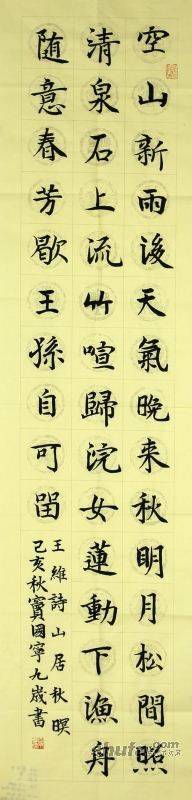 空山新雨後天氣晚来秋明月松間照
清泉石上流竹喧歸浣女蓮動下漁舟
随意春芳歇王孫自可留
王維詩山居秋暝
己亥秋竇國寧九歲書